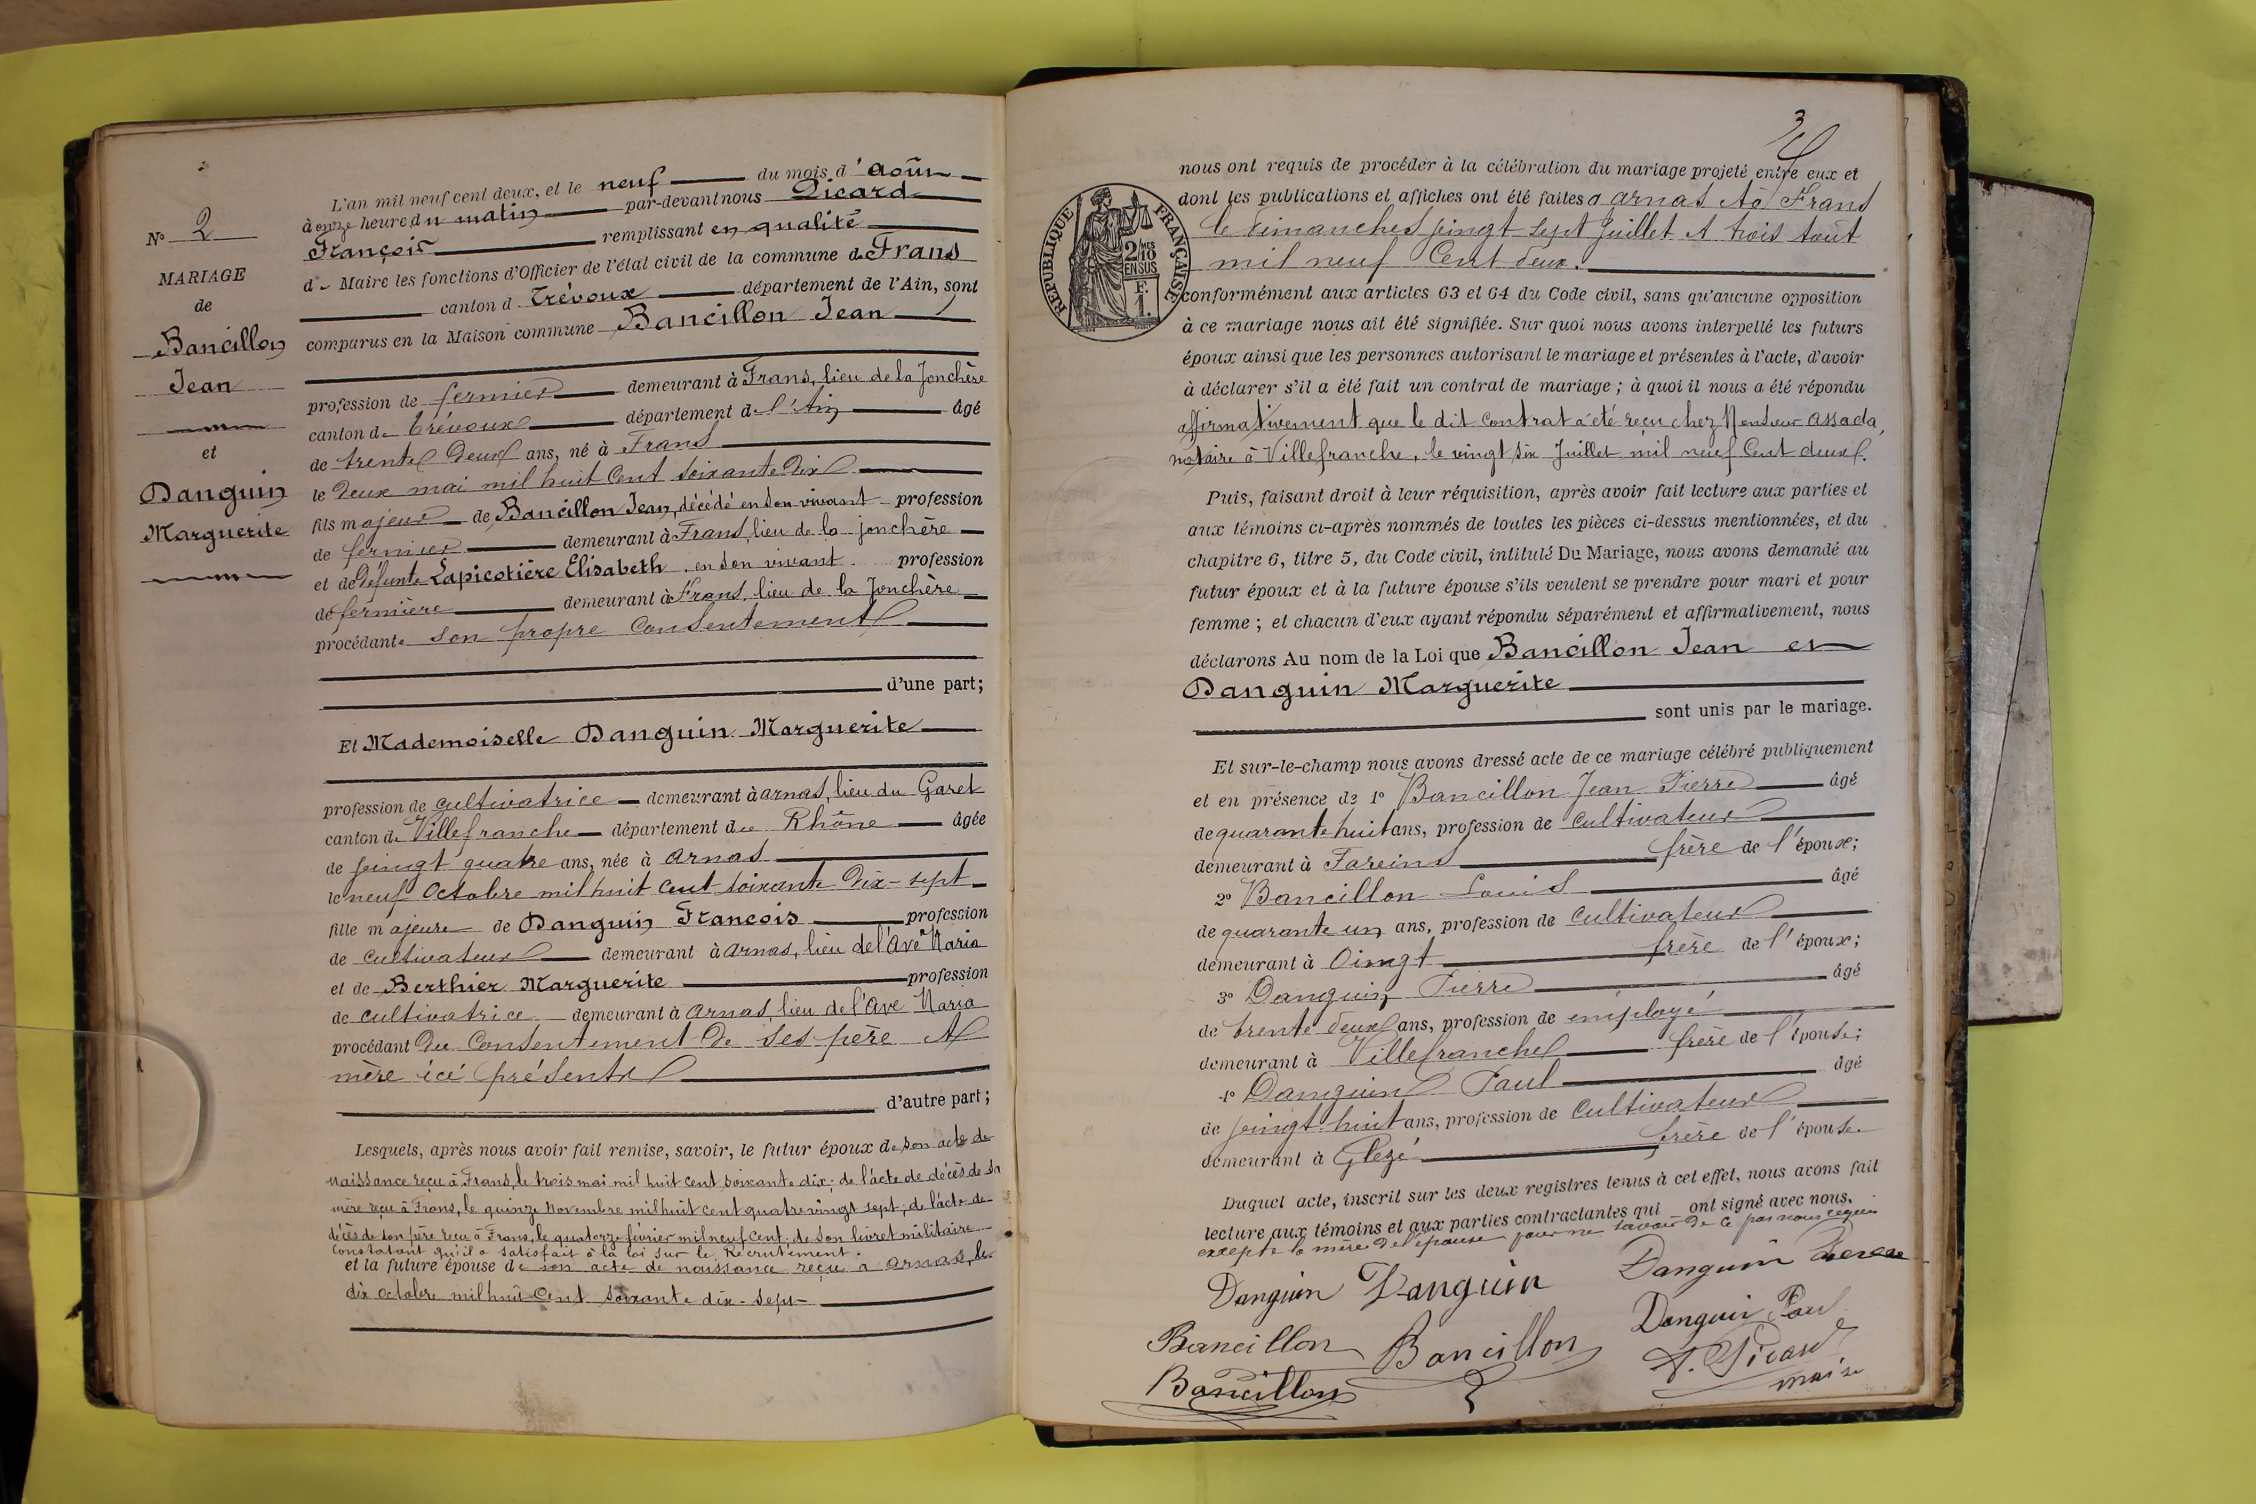 N° 2
MARIAGE
de
Bancillon
Jean
et
Danguin
Marguerite
L'an mil neuf cent deux, et le neuf du mois d'août
à onze heure du matin par-devant nous Picard
François remplissant en qualité
de Maire les fonctions d'Officier de l'état civil de la commune de Frans
canton de Trévoux département de l'Ain, sont
comparus en la Maison commune Bancillon Jean
profession de fermier demeurant à Frans, lieu de la Jonchère
canton de Trévoux département de l'Ain âgé
de trente deux ans, né à Frans
le deux mai mil huit cent soixante dix
fils majeur de Bancillon Jean, décédé en son vivant profession
de fermier demeurant à Frans, lieu de la jonchère
et de défunte Lapicotière Elisabeth, en son vivant profession
de fermière demeurant à Frans, lieu de la Jonchère
procédant de son propre consentement
d'une part;
Et Mademoiselle Danguin Marguerite
profession de cultivatrice demeurant à arnas, lieu du Garet
canton de Villefranche département du Rhône âgée
de vingt quatre ans, née à arnas
le neuf octobre mil huit cent soixante dix-sept
fille majeure de Danguin François profession
de cultivateur demeurant à arnas, lieu de l'Ave Maria
et de Berthier Marguerite profession
de cultivatrice demeurant à arnas, lieu de l'Ave Maria
procédant du consentement de ses père et
mère ici présents
d'autre part;
Lesquels, après nous avoir fait remise, savoir, le futur époux de son acte de
naissance reçu à Frans, le trois mai mil huit cent soixante dix; de l'acte de décès de sa
mère reçu à Frans, le quinze novembre mil huit cent quatre vingt sept; de l'acte de
décès de son père reçu à Frans, le quatorze février mil neuf cent; de son livret militaire
constatant qu'il a satisfait à la loi sur le Recrutement.
et la future épouse de son acte de naissance reçu à arnas, le
dix octobre mil huit cent soixante dix-sept
3
RÉPUBLIQUE FRANÇAISE
2/10 MES
EN SUS
F.
1.
nous ont requis de procéder à la célébration du mariage projeté entre eux et
dont les publications et affiches ont été faites à arnas et à Frans
le dimanches vingt sept Juillet et trois août
mil neuf cent deux.
conformément aux articles 63 et 64 du Code civil, sans qu'aucune opposition
à ce mariage nous ait été signifiée. Sur quoi nous avons interpellé les futurs
époux ainsi que les personnes autorisant le mariage et présentes à l'acte, d'avoir
à déclarer s'il a été fait un contrat de mariage; à quoi il nous a été répondu
affirmativement que le dit contrat a été reçu chez Monsieur assada,
notaire à Villefranche, le vingt six Juillet mil neuf cent deux.
Puis, faisant droit à leur réquisition, après avoir fait lecture aux parties et
aux témoins ci-après nommés de toutes les pièces ci-dessus mentionnées, et du
chapitre 6, titre 5, du Code civil, intitulé Du Mariage, nous avons demandé au
futur époux et à la future épouse s'ils veulent se prendre pour mari et pour
femme; et chacun d'eux ayant répondu séparément et affirmativement, nous
déclarons Au nom de la Loi que Bancillon Jean et
Danguin Marguerite
sont unis par le mariage.
Et sur-le-champ nous avons dressé acte de ce mariage célébré publiquement
et en présence de 1° Bancillon Jean Pierre âgé
de quarante huit ans, profession de cultivateur
demeurant à Fareins frère de l'époux;
2° Bancillon Louis âgé
de quarante un ans, profession de cultivateur
demeurant à Oingt frère de l'époux;
3° Danguin Pierre âgé
de trente deux ans, profession de employé
demeurant à Villefranche frère de l'épouse;
4° Danguin Paul âgé
de vingt huit ans, profession de cultivateur
demeurant à Glezé frère de l'épouse
Duquel acte, inscrit sur les deux registres tenus à cet effet, nous avons fait
lecture aux témoins et aux parties contractantes qui ont signé avec nous,
excepté la mère de l'épouse pour ne savoir de ce par nous requis
Danguin Danguin Danguin
Danguin Paul
Bancillon Bancillon F. Picard
Bancillon maire